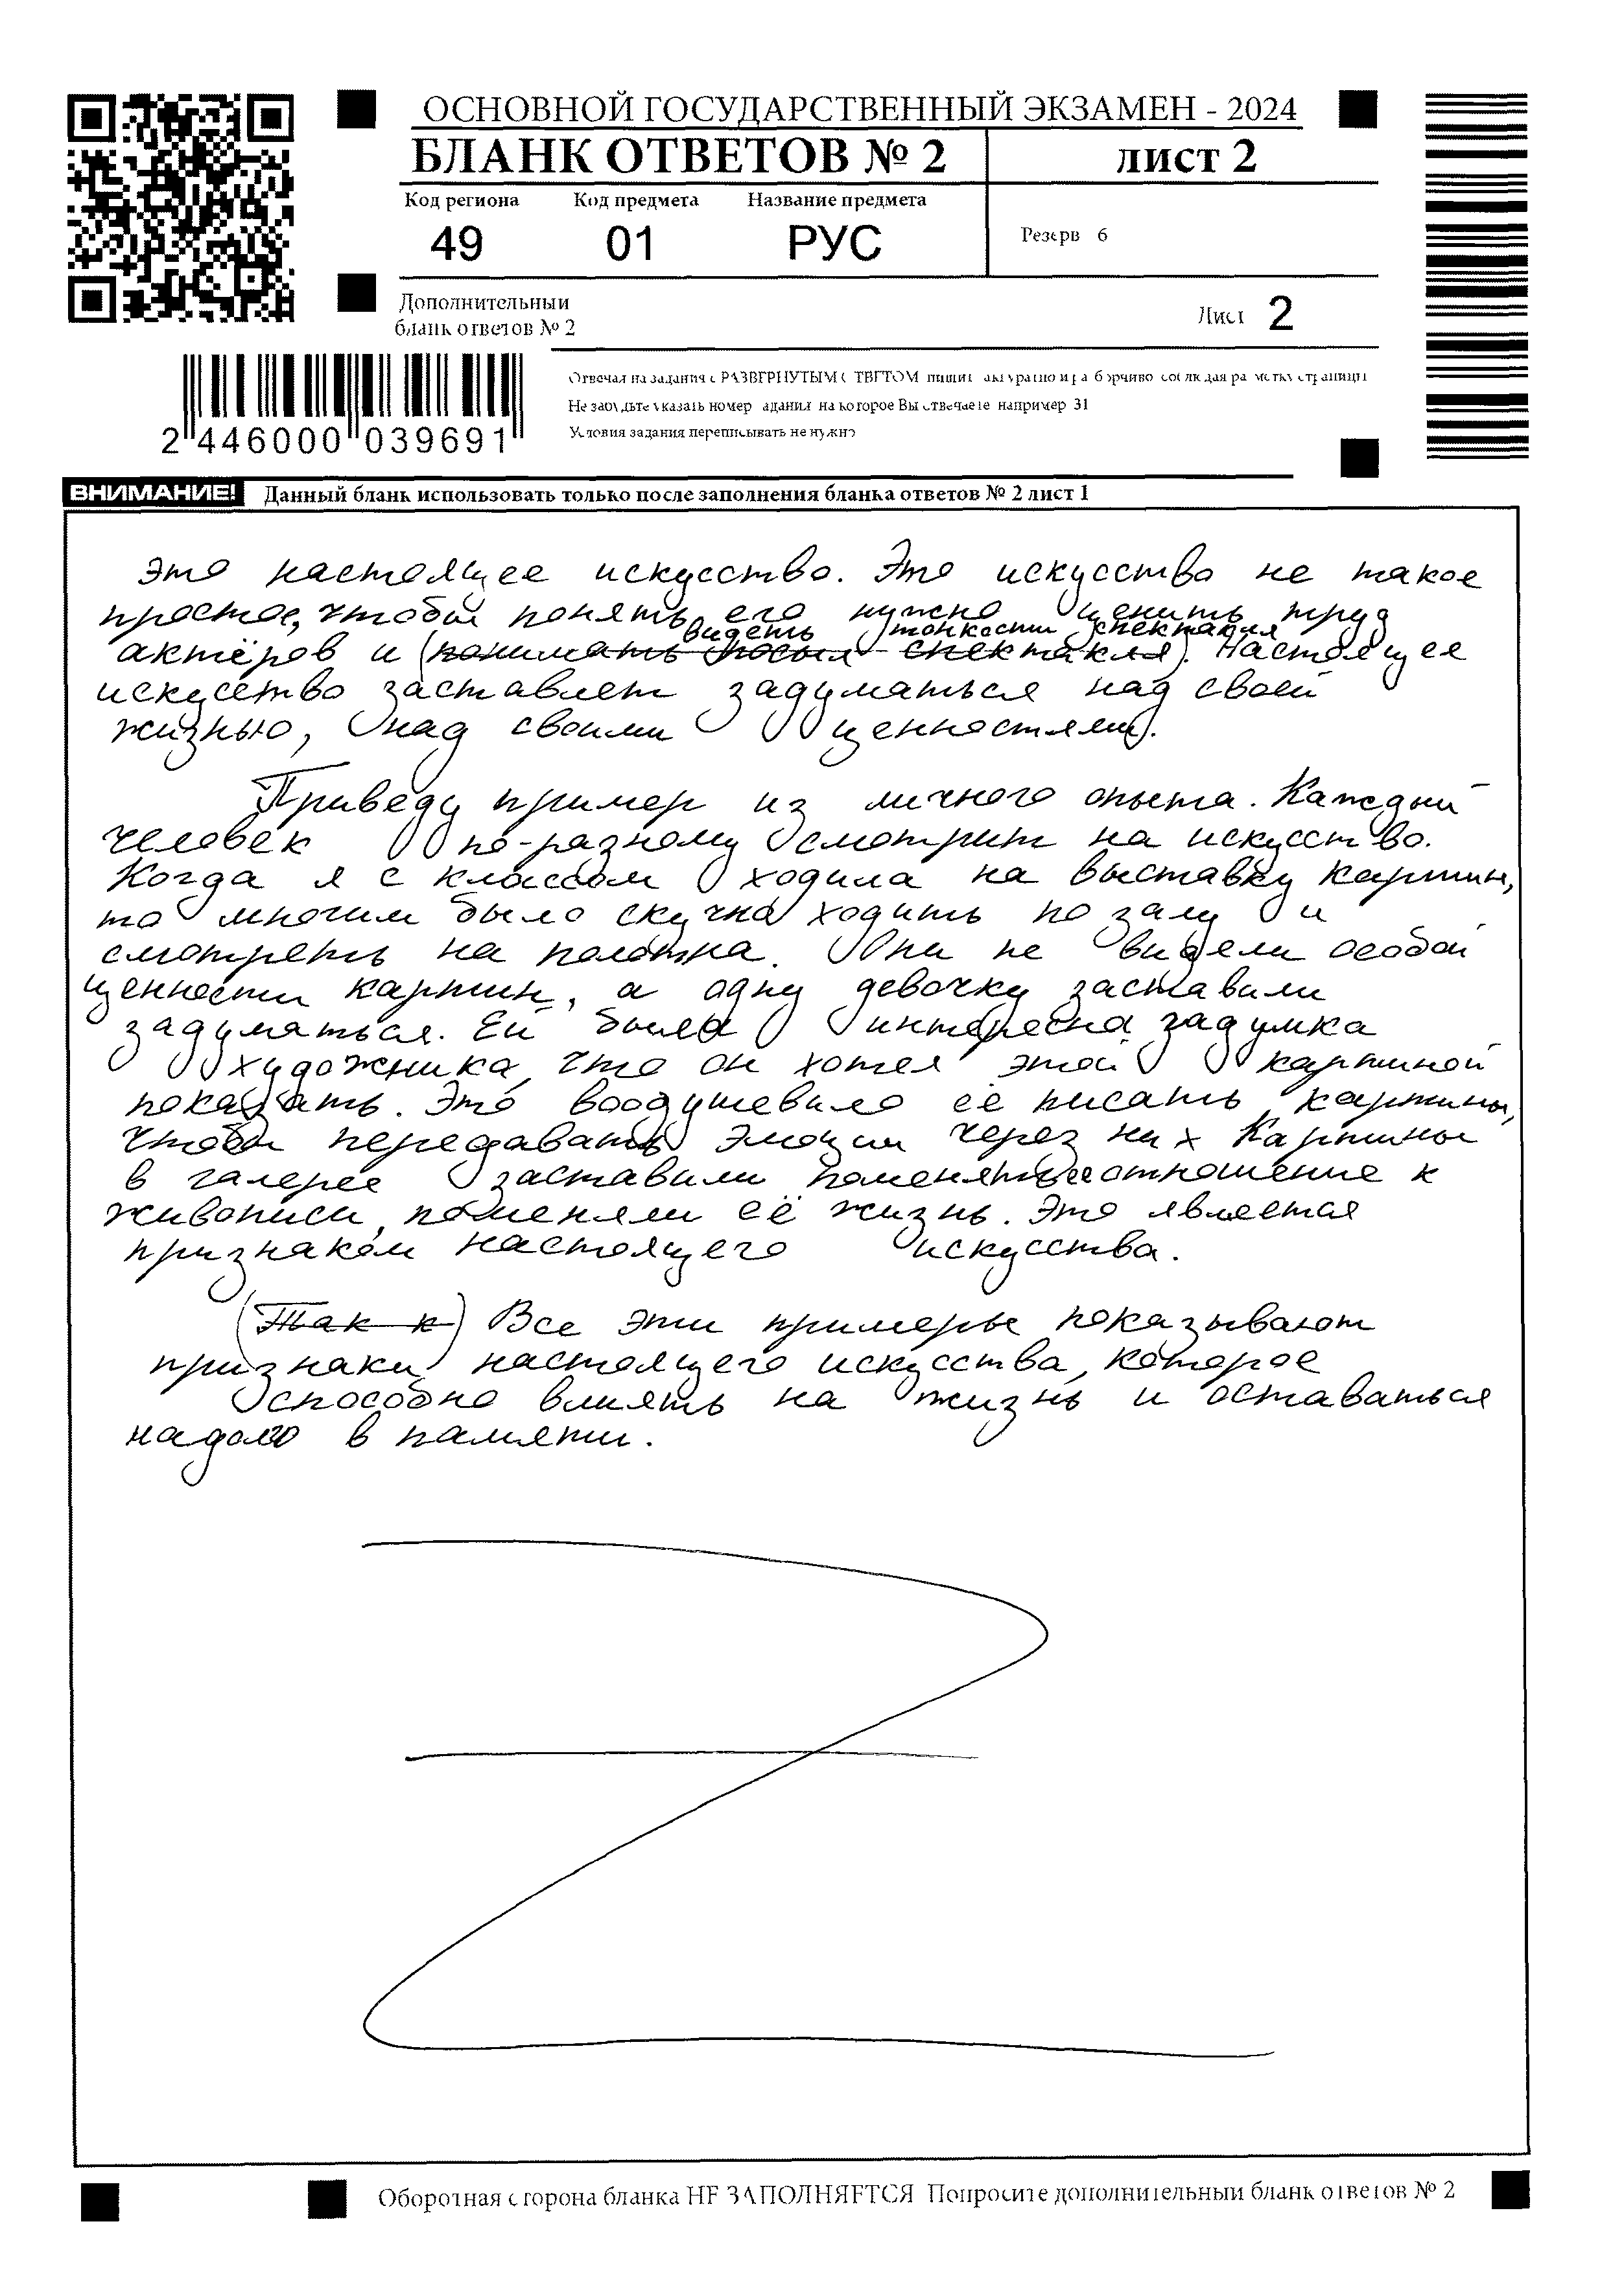 ОСНОВНОЙ ГОСУДАРСТВЕННЫЙ ЭКЗАМЕН - 2024
БЛАНК ОТВЕТОВ № 2
лист 2
Код региона Код предмета Название предмета
49 01 РУС
Резерв 6
Дополнительный
бланк ответов № 2
Лист 2
Отвечая на задания с РАЗВЕРНУТЫМ ОТВЕТОМ пишите аккуратно и разборчиво соблюдая разметку страницы
Не забудьте указать номер задания на которое Вы отвечаете например 31
Условия задания переписывать не нужно
2 446000 039691
ВНИМАНИЕ! Данный бланк использовать только после заполнения бланка ответов № 2 лист 1
это настоящее искусство. Это искусство не такое
простое, чтобы понять его нужно оценить труд
видеть тонкости спектакля
актёров и (понимать посыл спектакля). Настоящее
искусство заставляет задуматься над своей
жизнью, над своими ценностями.
Приведу пример из личного опыта. Каждый
человек по-разному смотрит на искусство.
Когда я с классом ходила на выставку картин,
то многим было скучно ходить по залу и
смотреть на полотна. Они не видели особой
ценности картин, а одну девочку заставили
задуматься. Ей была интересна задумка
художника, что он хотел этой картиной
показать. Это воодушевило её писать картины,
чтобы передавать эмоции через них Картины
в галерее заставили поменять её отношение к
живописи, поменяли её жизнь. Это является
признаком настоящего искусства.
(Так к) Все эти примеры показывают
признаки настоящего искусства, которое
способно влиять на жизнь и оставаться
надолго в памяти.
Оборотная сторона бланка НЕ ЗАПОЛНЯЕТСЯ Попросите дополнительный бланк ответов № 2